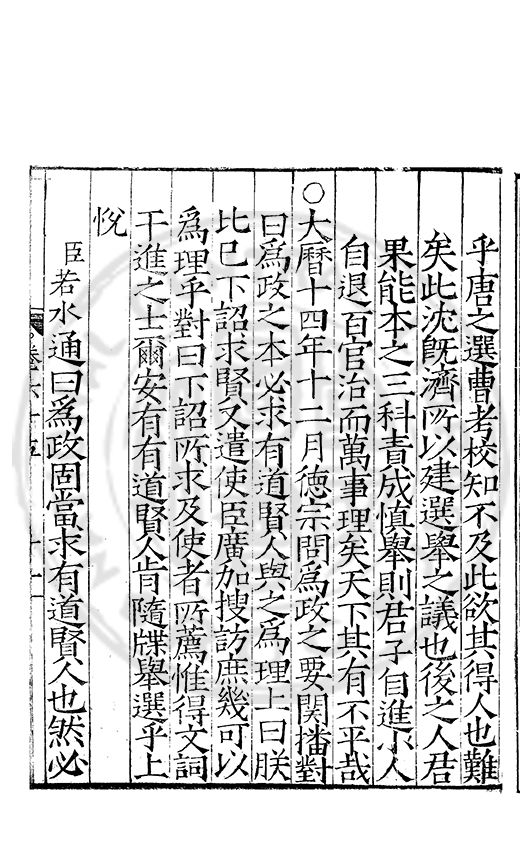 乎唐之選曹考校知不及此欲其得人也難
矣此沈旣濟所以建選舉之議也後之人君
果能本之三科責成慎舉則君子自進小人
自退百官治而萬事理矣天下其有不平哉
○大曆十四年十二月德宗問爲政之要関播對
曰爲政之本必求有道賢人與之爲理上曰朕
比巳下詔求賢又遣使臣廣加搜訪庶幾可以
爲理乎對曰下詔所求及使者所薦惟得文詞
干進之士爾安有有道賢人肯隨牒舉選乎上
悅
臣若水通曰爲政固當求有道賢人也然必
卷六十五
十一